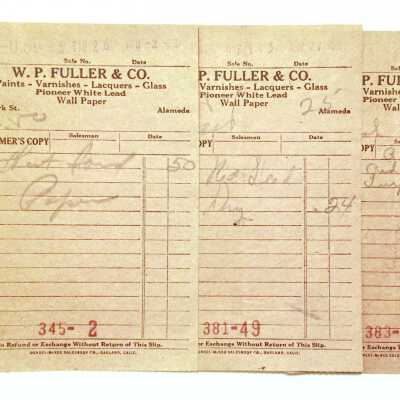 Sale No. Date
W. P. FULLER & CO.
Paints - Varnishes - Lacquers - Glass
Pioneer White Lead
Wall Paper
rk St. Alameda
MER'S COPY Salesman Amount
50
Paper
345- 2
o Refund or Exchange Without Return of This Slip.
Sale No. Date
P. FULLER & CO.
Varnishes - Lacquers - Glass
Pioneer White Lead
Wall Paper
25
Alameda
COPY Salesman Date
Red Lead
Dry .24
381-49
or Exchange Without Return of This Slip.
P.
Va
Pi
COPY
383-
or Exchan